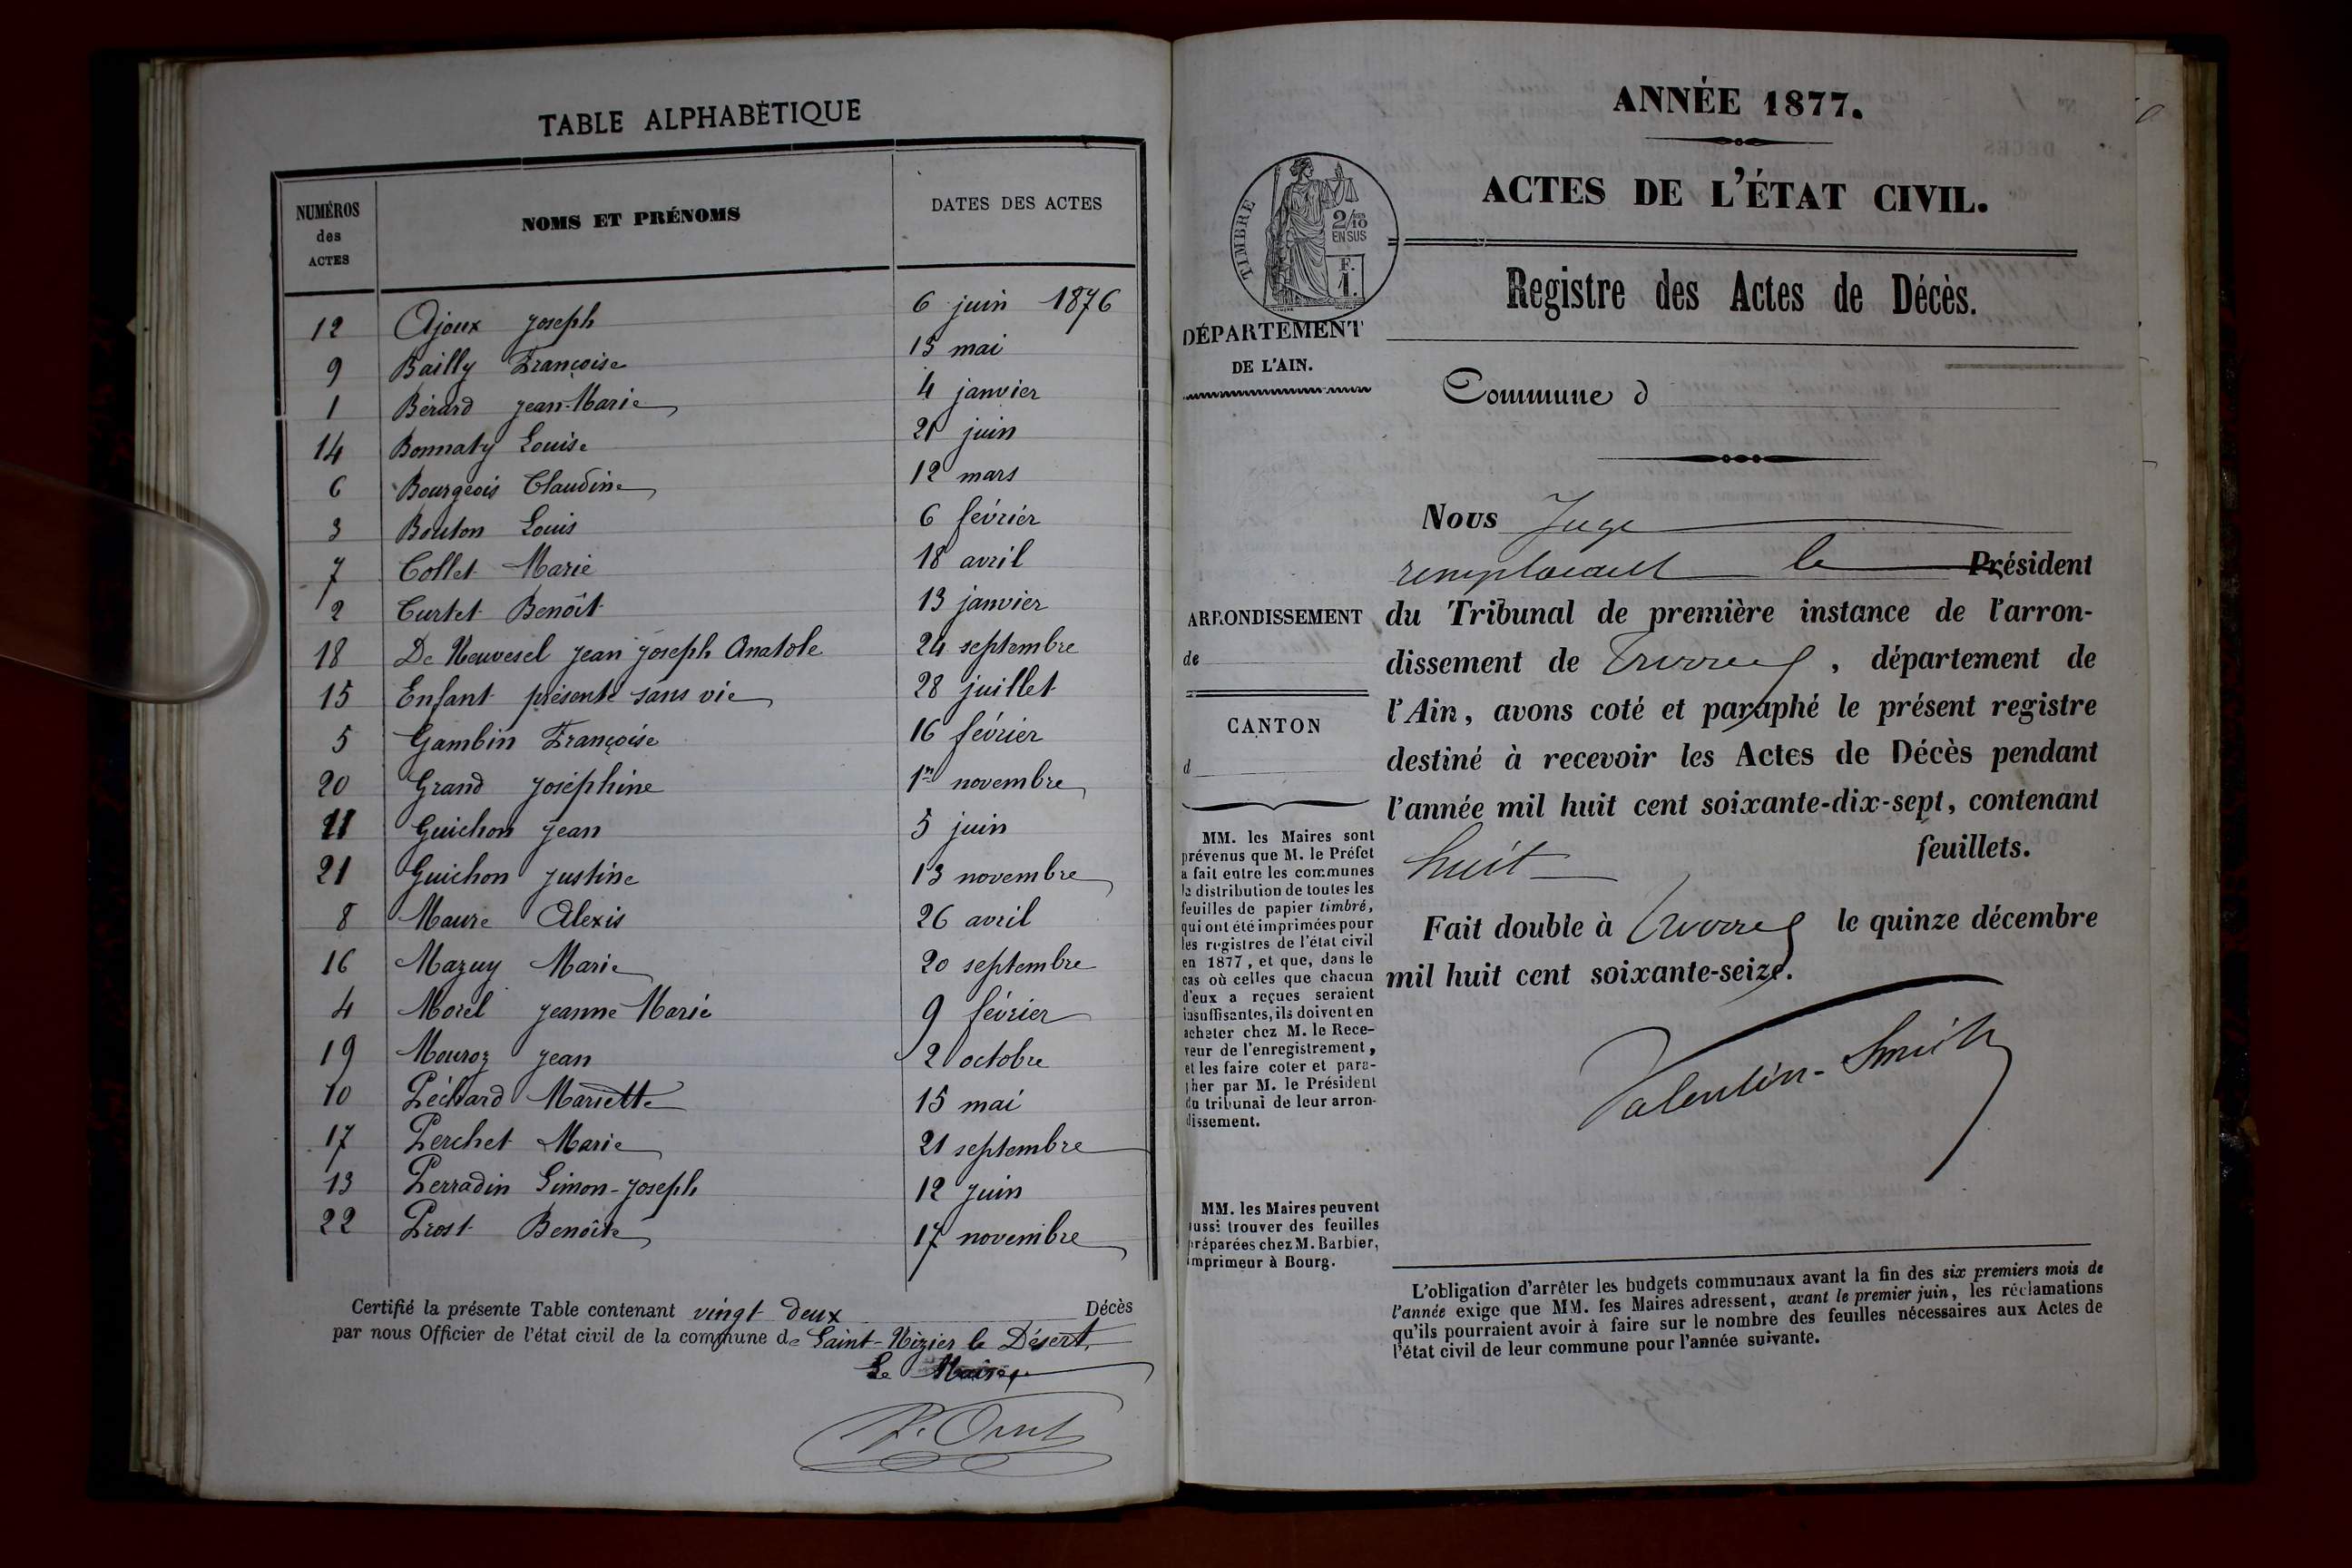 TABLE ALPHABÉTIQUE
NUMÉROS des ACTES NOMS ET PRÉNOMS DATES DES ACTES
12 Ajoux Joseph 6 juin 1876
9 Bailly Françoise 15 mai
1 Bérard Jean-Marie 4 janvier
14 Bonnaty Louise 21 juin
6 Bourgeois Claudine 12 mars
3 Bouton Louis 6 février
7 Collet Marie 18 avril
2 Curtet Benoît 13 janvier
18 De Neuvesel Jean Joseph Anatole 24 septembre
15 Enfant présenté sans vie 28 juillet
5 Gambin Françoise 16 février
20 Grand Joséphine 1er novembre
11 Guichon Jean 5 juin
21 Guichon Justine 13 novembre
8 Maure Alexis 26 avril
16 Mazuy Marie 20 septembre
4 Morel Jeanne Marie 9 février
19 Mouroz Jean 2 octobre
10 Péchard Mariette 15 mai
17 Perchet Marie 21 septembre
13 Perradin Simon-Joseph 12 juin
22 Prost Benoîte 17 novembre
Certifié la présente Table contenant vingt deux Décès
par nous Officier de l'état civil de la commune de Saint-Nizier le Désert.
Le Maire,
ANNÉE 1877.
ACTES DE L'ÉTAT CIVIL.
TIMBRE
2/10
EN SUS
F.
1.
DÉPARTEMENT
DE L'AIN.
Registre des Actes de Décès.
Commune d
ARRONDISSEMENT
de
CANTON
d
MM. les Maires sont
prévenus que M. le Préfet
a fait entre les communes
la distribution de toutes les
feuilles de papier timbré,
qui ont été imprimées pour
les registres de l'état civil
en 1877, et que, dans le
cas où celles que chacun
d'eux a reçues seraient
insuffisantes, ils doivent en
acheter chez M. le Rece-
veur de l'enregistrement,
et les faire coter et para-
pher par M. le Président
du tribunal de leur arron-
dissement.
MM. les Maires peuvent
aussi trouver des feuilles
préparées chez M. Barbier,
imprimeur à Bourg.
Nous Juge
remplaçant le Président
du Tribunal de première instance de l'arron-
dissement de Trévoux, département de
l'Ain, avons coté et paraphé le présent registre
destiné à recevoir les Actes de Décès pendant
l'année mil huit cent soixante-dix-sept, contenant
huit feuillets.
Fait double à Trévoux le quinze décembre
mil huit cent soixante-seize.
Valentin-Smith
L'obligation d'arrêter les budgets communaux avant la fin des six premiers mois de
l'année exige que MM. les Maires adressent, avant le premier juin, les réclamations
qu'ils pourraient avoir à faire sur le nombre des feuilles nécessaires aux Actes de
l'état civil de leur commune pour l'année suivante.